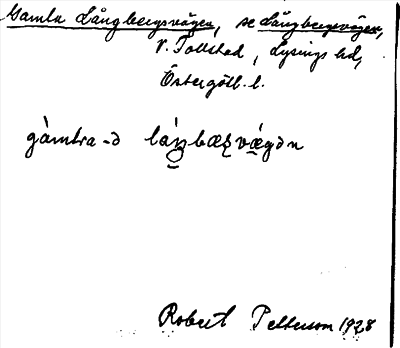 Gamla Långbergsvägen, se Långbergsvägen,
V. Tollstad, Lysings hd,
Östergötl. l.
gàmbra -ə láŋbæʐvǽgən
Robert Petterson 1928